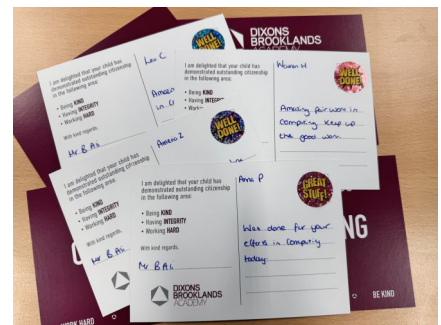 DIXONS
BROOKLANDS
ACADEMY
I am delighted that your child has
demonstrated outstanding citizenship
in the following area:
• Being KIND
• Having INTEGRITY
• Working HARD
With kind regards,
Mr B Ali
Leo C
WELL
DONE!
I am delighted that your child has
demonstrated outstanding citizenship
in the following area:
• Being KIND
• Having
Warren H
WELL
DONE!
Amazing pair work in
Computing keep up
the good work.
I am delighted that your child has
demonstrated outstanding citizenship
in the following area:
• Being KIND
• Having INTEGRITY
• Working HARD
With kind regards,
Mr B Ali
WELL
DONE!
I am delighted that your child has
demonstrated outstanding citizenship
in the following area:
• Being KIND
• Having INTEGRITY
• Working HARD
With kind regards,
Mr B Ali
DIXONS
BROOKLANDS
ACADEMY
GREAT
STUFF!
Well done for your
efforts in Computing
today.
NG
WORK HARD
BE KIND